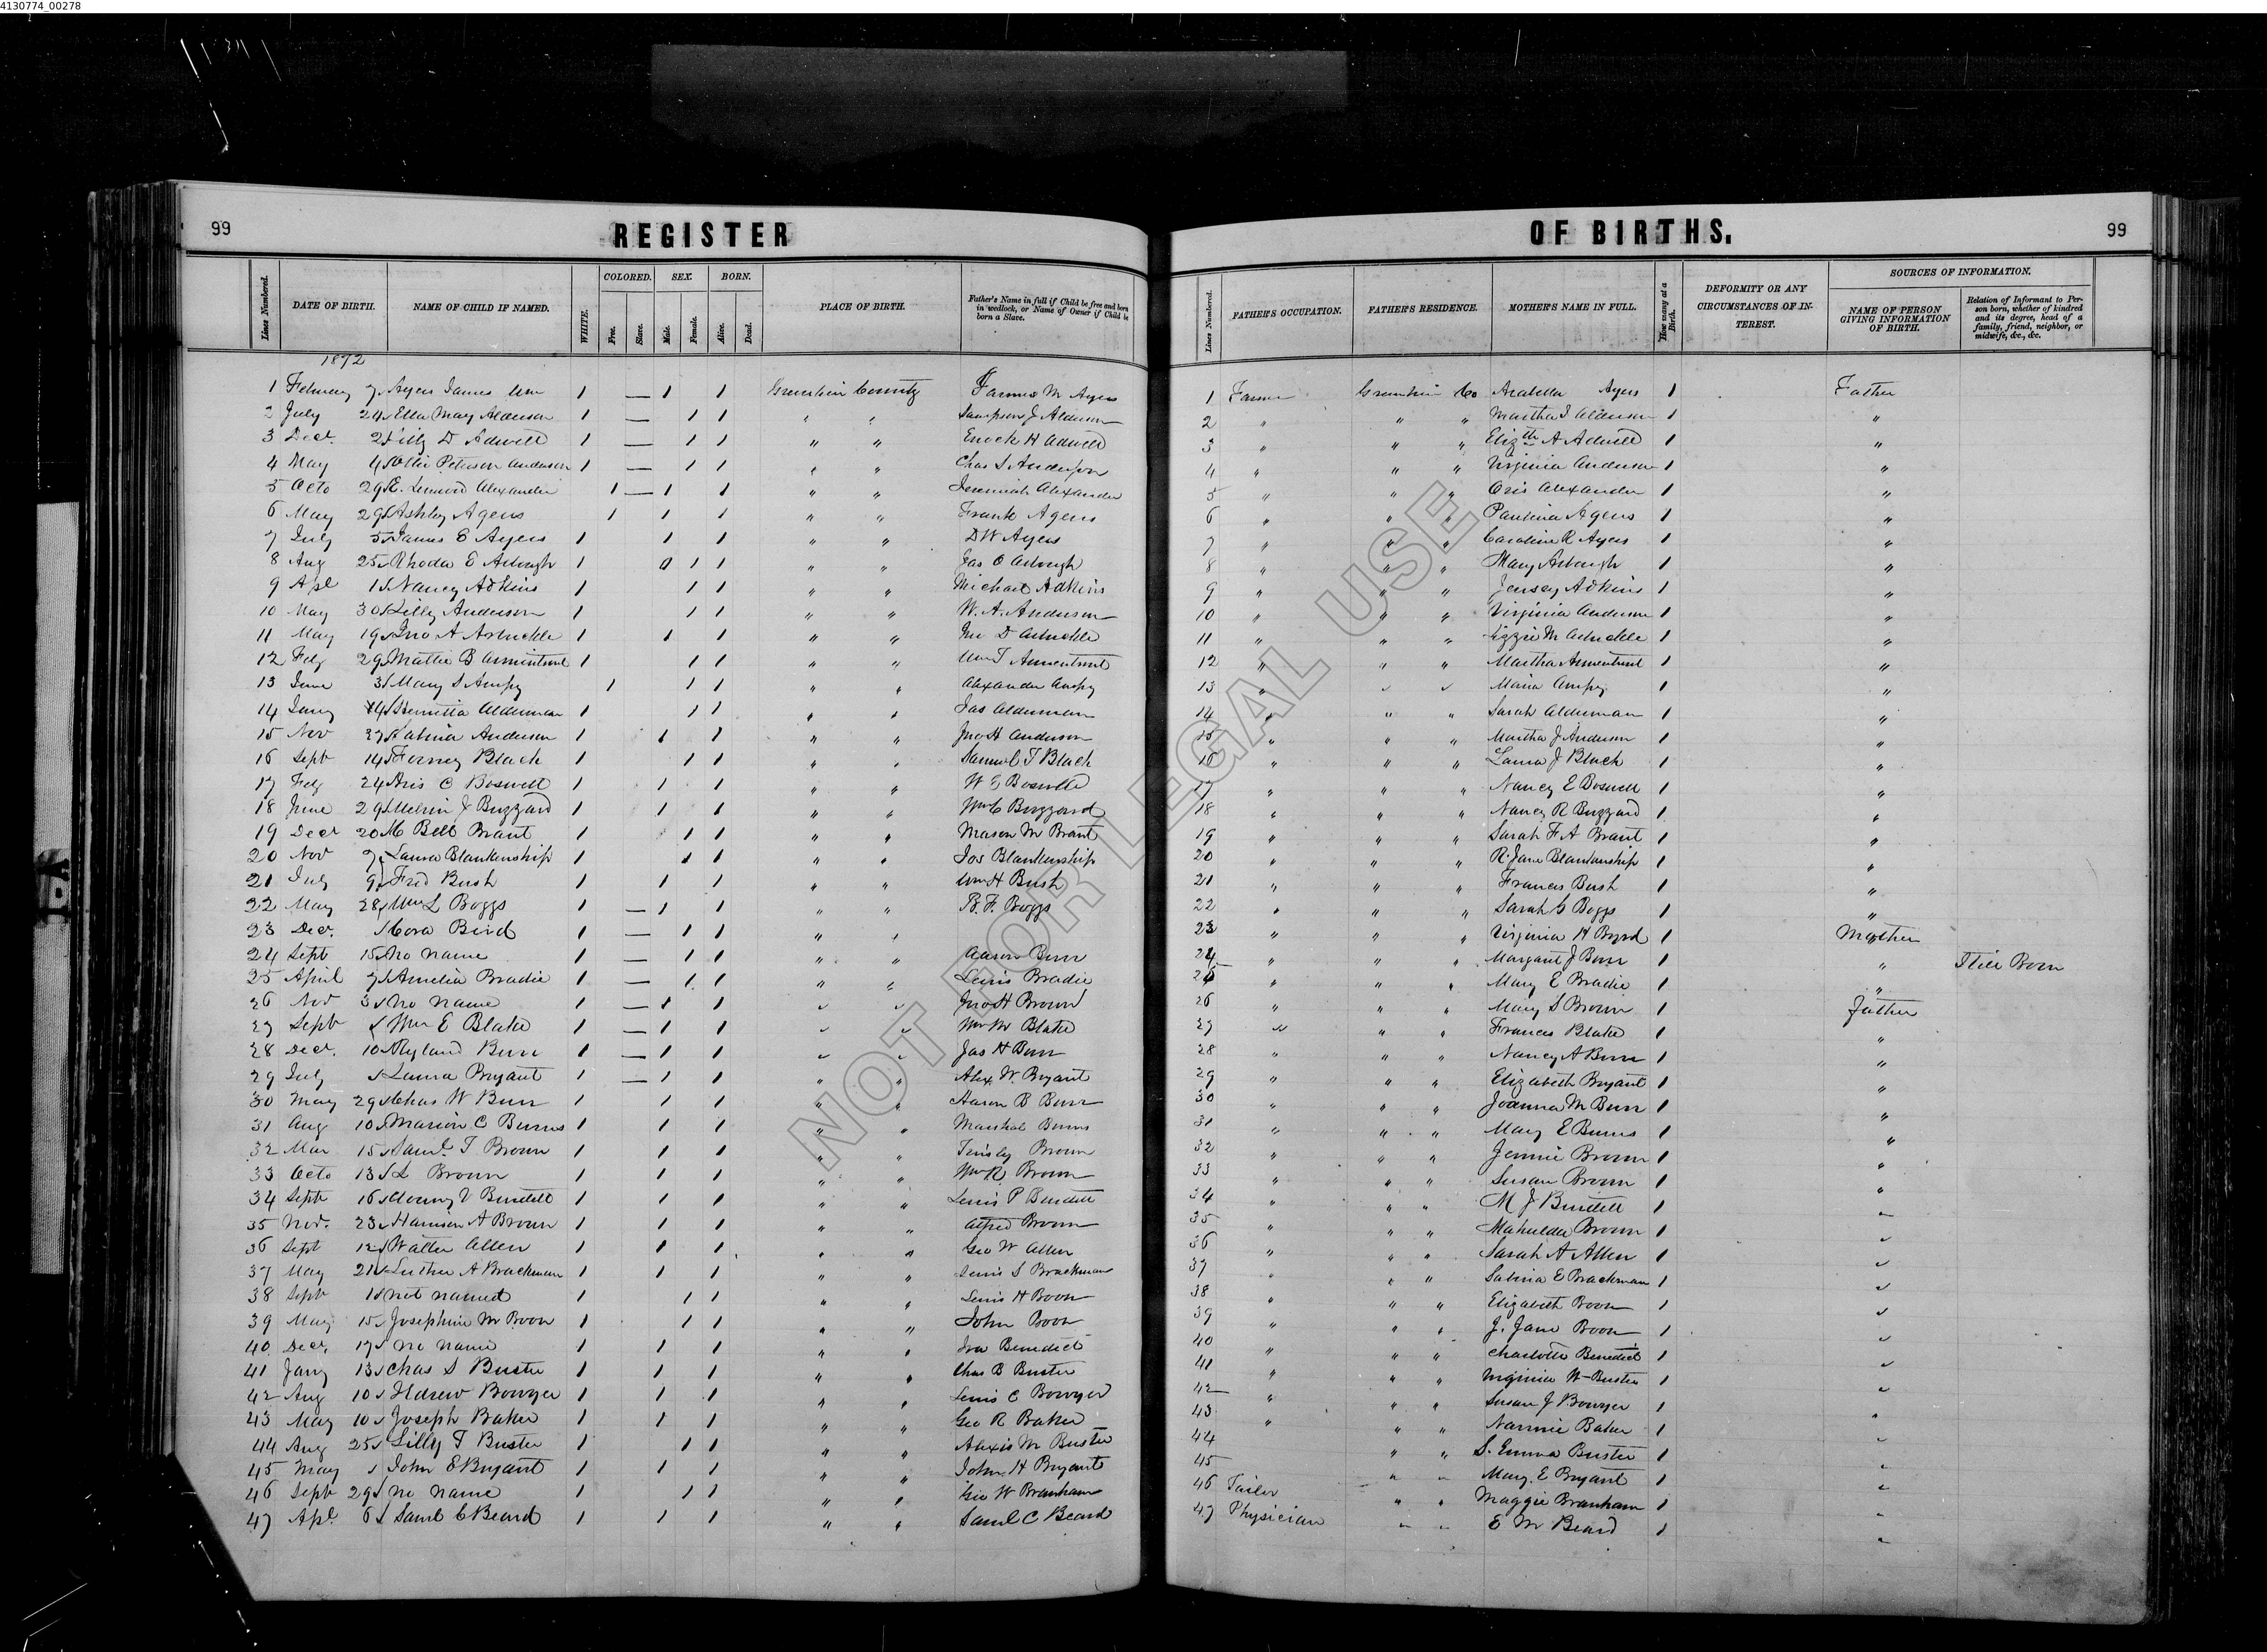 4130774_00278
99 REGISTER OF BIRTHS. 99
Lines Numbered. DATE OF BIRTH. NAME OF CHILD IF NAMED. WHITE. COLORED. Free. Slave. SEX. Male. Female. BORN. Alive. Dead. PLACE OF BIRTH. Father's Name in full if Child be free and born in wedlock, or Name of Owner if Child be born a Slave.
Lines Numbered. FATHER'S OCCUPATION. FATHER'S RESIDENCE. MOTHER'S NAME IN FULL. How many at a Birth. DEFORMITY OR ANY CIRCUMSTANCES OF INTEREST. SOURCES OF INFORMATION. NAME OF PERSON GIVING INFORMATION OF BIRTH. Relation of Informant to Person born, whether of kindred and its degree, head of a family, friend, neighbor, or midwife, &c., &c.
1872
1 February 7 Ayers James Wm 1 — 1 1 County M Ayers 1 Farmer Co Arabella Ayers 1 Father
2 July 24 Ella May Alderson 1 — 1 1 " " Sampson J Alderson 2 " " " Martha J Alderson 1 "
3 Decr. 2 Lilly D Adwell 1 — 1 1 " " Enoch H Adwell 3 " " " Elizth A Adwell 1 "
4 May 4 Ollie Peterson Anderson 1 — 1 1 " " Chas S Anderson 4 " " " Virginia Anderson 1 "
5 Octo 29 Alexander 1 — 1 1 " " Jeremiah Alexander 5 " " " Alexander 1 "
6 May 29 Ashby Agens 1 1 1 " " Frank Agens 6 " " " Paulina Agens 1 "
7 July 5 James E Ayers 1 1 1 " " D W Ayers 7 " " " Caroline R Ayers 1 "
8 Aug 25 Rhoda E Arbough 1 1 1 " " Jas O Arbough 8 " " " Mary Arbough 1 "
9 Apl 1 Nancy Adkins 1 1 1 " " Michael Adkins 9 " " " Jersey Adkins 1 "
10 May 30 Lilly Anderson 1 1 1 " " W. A. Anderson 10 " " " Virginia Anderson 1 "
11 May 19 Jno A Arbuckle 1 1 1 " " Jno D Arbuckle 11 " " " Lizzie M Arbuckle 1 "
12 Feby 29 Mattie B Armentrout 1 1 1 " " Wm T Armentrout 12 " " " Martha Armentrout 1 "
13 June 3 Mary S Ampy 1 1 1 " " Alexander Ampy 13 " " " Maria Ampy 1 "
14 Jany Henrietta Alderman 1 1 1 " " Jas Alderman 14 " " " Sarah Alderman 1 "
15 Nov 27 Anderson 1 1 1 " " Jno H Anderson 15 " " " Martha J Anderson 1 "
16 Sept 14 Black 1 1 1 " " Samuel T Black 16 " " " Laura J Black 1 "
17 Feby 24 Aris C Boswell 1 1 1 " " W Boswell 17 " " " Nancy E Boswell 1 "
18 June 29 Melvin J Buzzard 1 1 1 " " Wm C Buzzard 18 " " " Nancy R Buzzard 1 "
19 Decr 20 M Bell Brant 1 1 1 " " Mason M Brant 19 " " " Sarah F A Brant 1 "
20 Nov 7 Laura Blankenship 1 1 1 " " Jos Blankenship 20 " " " R. Jane Blankenship 1 "
21 July 9 Fred Bush 1 1 1 " " Wm H Bush 21 " " " Frances Bush 1 "
22 May 28 Wm L Boggs 1 — 1 1 " " B. F. Boggs 22 " " " Sarah G Boggs 1 "
23 Decr. Cora Bird 1 — 1 1 " " 23 " " " Virginia H Byrd 1 Mother
24 Sept 15 No name 1 — 1 1 " " Aaron Burr 24 " " " Margaret J Burr 1 " Still Born
25 April 7 Amelia Bradie 1 — 1 1 " " Lewis Bradie 25 " " " Mary E Bradie 1 "
26 Nov 3 No name 1 — 1 1 " " Jno H Brown 26 " " " Mary S Brown 1 Father
27 Sept Wm E Blake 1 — 1 1 " " Wm M Blake 27 " " " Frances Blake 1 "
28 Decr. 10 Ryland Burr 1 — 1 1 " " Jas H Burr 28 " " " Nancy A Burr 1 "
29 July Laura Bryant 1 — 1 1 " " Alex. W. Bryant 29 " " " Elizabeth Bryant 1 "
30 May 29 Chas W Burr 1 1 1 " " Aaron B Burr 30 " " " Joanna M Burr 1 "
31 Aug 10 Marion C Burns 1 1 1 " " Marshal Burns 31 " " " Mary E Burns 1 "
32 Mar 15 Saml. T Brown 1 1 1 " " Tinsley Brown 32 " " " Jennie Brown 1 "
33 Octo 13 L Brown 1 1 1 " " Wm R Brown 33 " " " Susan Brown 1 "
34 Sept 16 V Burdett 1 1 1 " " Lewis P Burdett 34 " " " M J Burdett 1 "
35 Nov. 23 Harrison A Brown 1 1 1 " " Alfred Brown 35 " " " Mahulda Brown 1 "
36 Sept 12 Walter Allen 1 1 1 " " Geo W Allen 36 " " " Sarah A Allen 1 "
37 May 21 Luther A Brackman 1 1 1 " " Lewis S Brackman 37 " " " Sabina E Brackman 1 "
38 Sept 1 not named 1 1 1 " " Lewis H Boon 38 " " " Elizabeth Boon 1 "
39 May 15 Josephine M Boon 1 1 1 " " John Boon 39 " " " J. Jane Boon 1 "
40 Decr. 17 no name 1 1 1 " " Ira Benedict 40 " " " Charlotte Benedict 1 "
41 Jany 13 Chas S Buster 1 1 1 " " Chas B Buster 41 " " " Virginia W Buster 1 "
42 Aug 10 Bowyer 1 1 1 " " Lewis C Bowyer 42 " " " Susan J Bowyer 1 "
43 May 10 Joseph Baker 1 1 1 " " Geo R Baker 43 " " " Nannie Baker 1 "
44 Aug 25 Lilly T Buster 1 1 1 " " Alexis M Buster 44 " " S. Emma Buster 1 "
45 May John E Bryant 1 1 1 " " John H Bryant 45 " " Mary E Bryant 1 "
46 Sept 29 no name 1 1 1 " " Geo W Branham 46 Tailor " " Maggie Branham 1 "
47 Apl. 6 Saml C Beard 1 1 1 " " Saml C Beard 47 Physician " " E M Beard 1 "
NOT FOR LEGAL USE